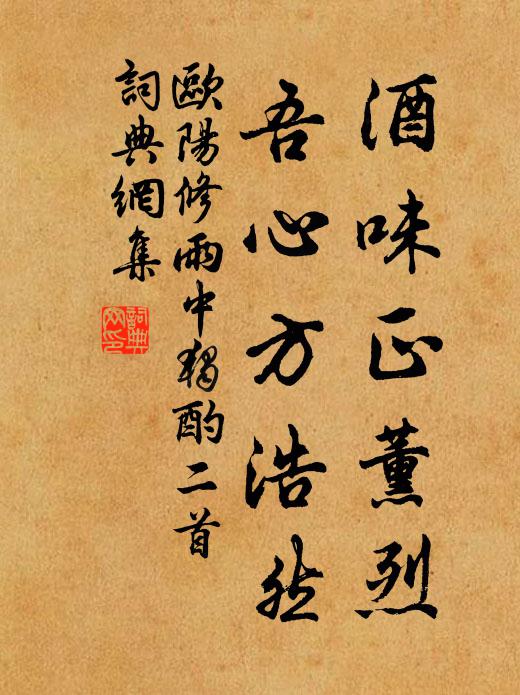 酒味正薰烈
吾心方浩然
歐陽修雨中獨酌二首
詞典網集
詞典網印